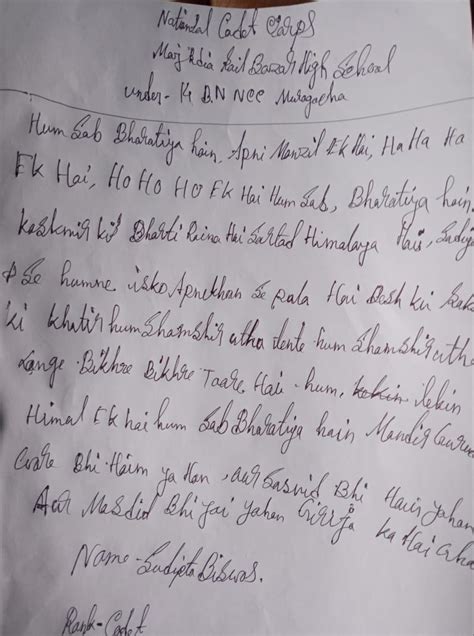 National Cadet Corps
Majhdia Rail Bazar High School
under - 14 BN NCC Muragacha
Hum Sab Bharatiya hain, Apni Manzil Ek Hai, Ha Ha Ha
Ek Hai, Ho Ho Ho Ek Hai Hum Sab, Bharatiya hain.
Kashmir ki Dharti Raina Hai Sartad Himalaya Hais, Sadiyo
Se humne isko Apne Khun Se pala Hai Desh ki
ki khatir hum Shamshir utha dente hum Shamshir utha
Lange Bikhre Bikhre Taare Hai hum, lekin
Himal Ek hai hum Sab Bharatiya hain Mandir Guru
Bhi Haim ya Han, aur Bhi Hain yahan
Aur Masdid Bhi yahan Girija ka Hai
Name - Sudipta Biswas.
Rank - Cadet